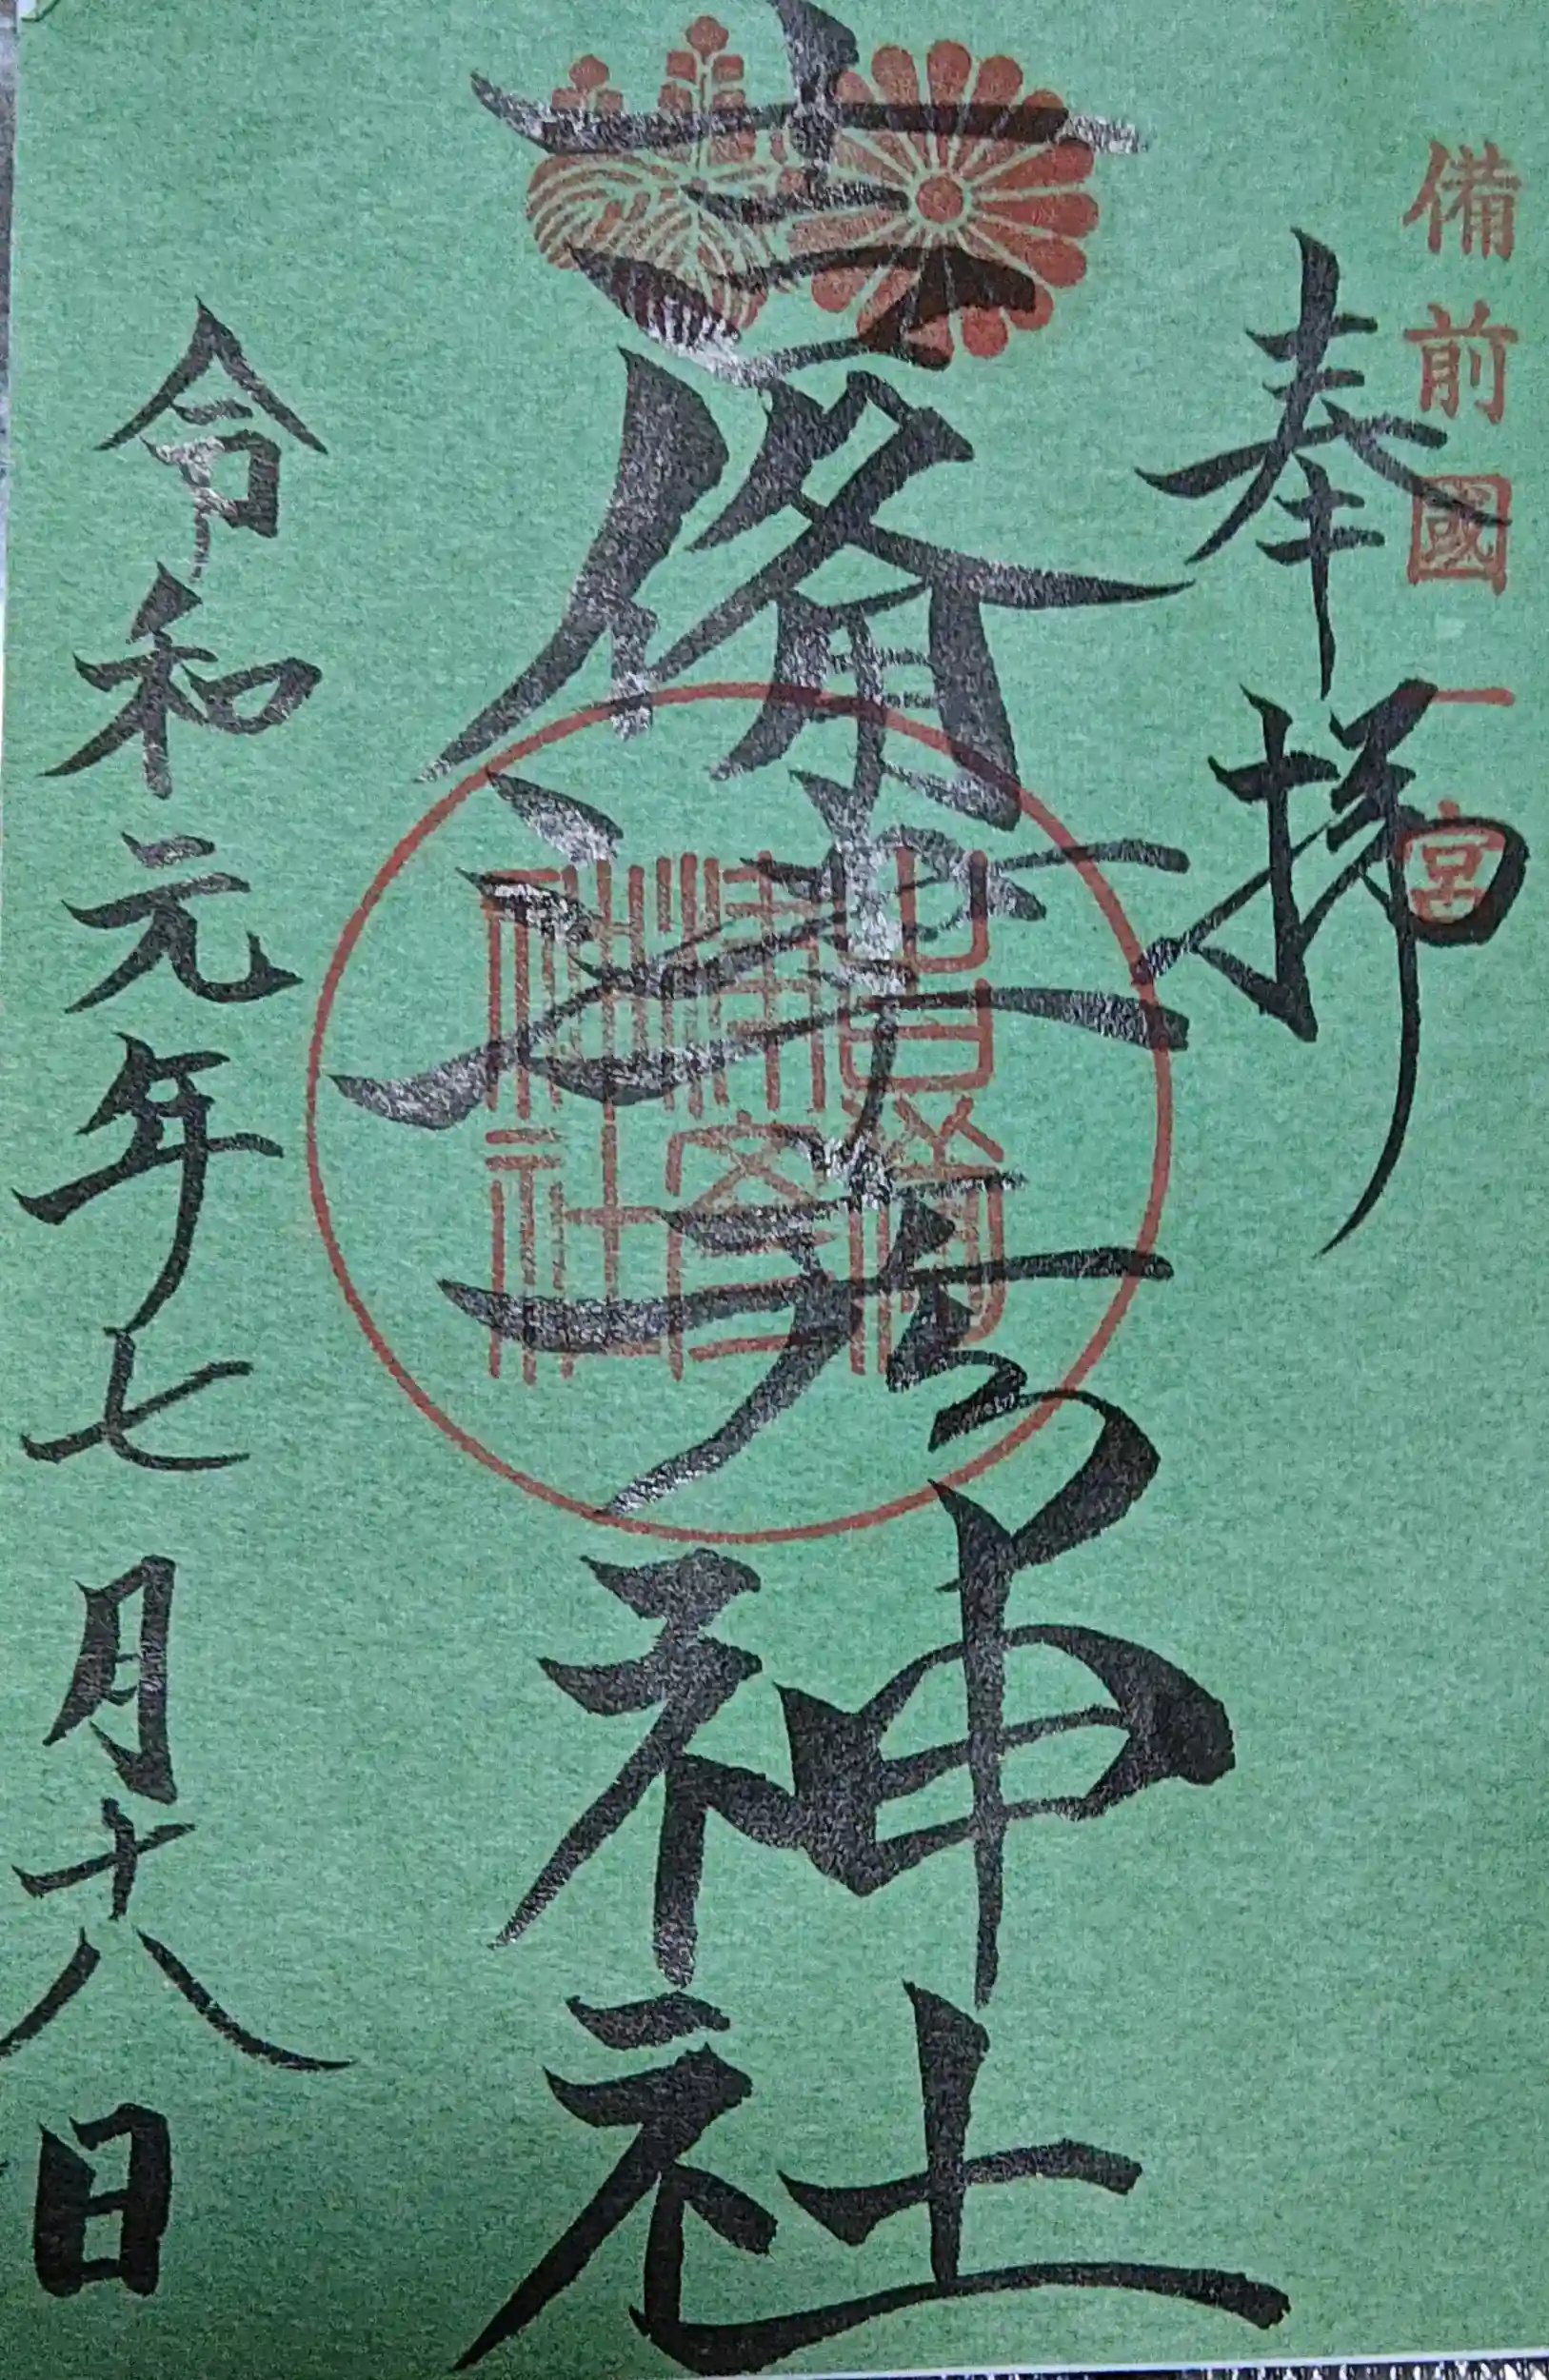 備前國一宮
奉拝
吉備津彦神社
吉備津彦神社
令和元年七月十八日